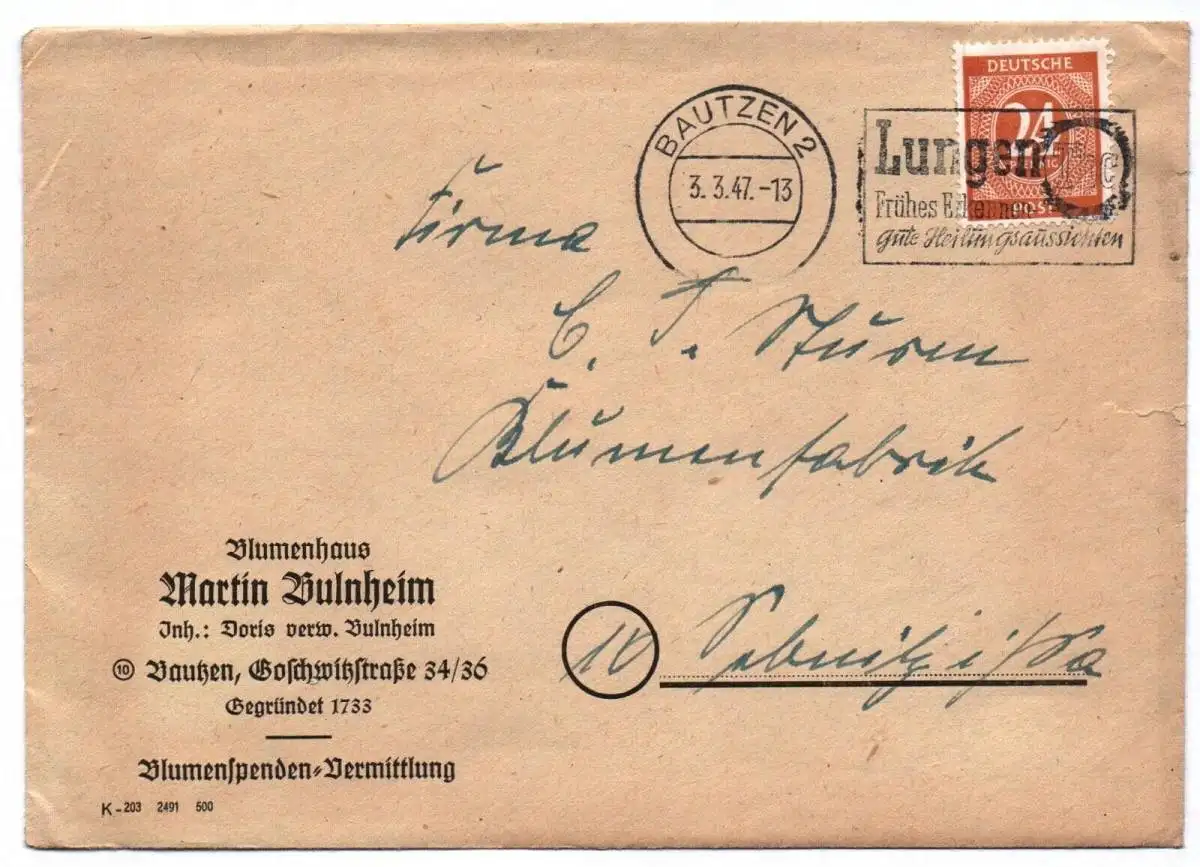 BAUTZEN 2
3. 3. 47. -13
DEUTSCHE
24
POST
Lungen Tbc
Frühes Erkennen
gute Heilungsaussichten
Firma
C. T. Sturm
Blumenfabrik
10 Sebnitz i/Sa
Blumenhaus
Martin Bulnheim
Inh.: Doris verw. Bulnheim
⑩ Bautzen, Goschwitzstraße 34/36
Gegründet 1733
Blumenspenden-Vermittlung
K-203 2491 500